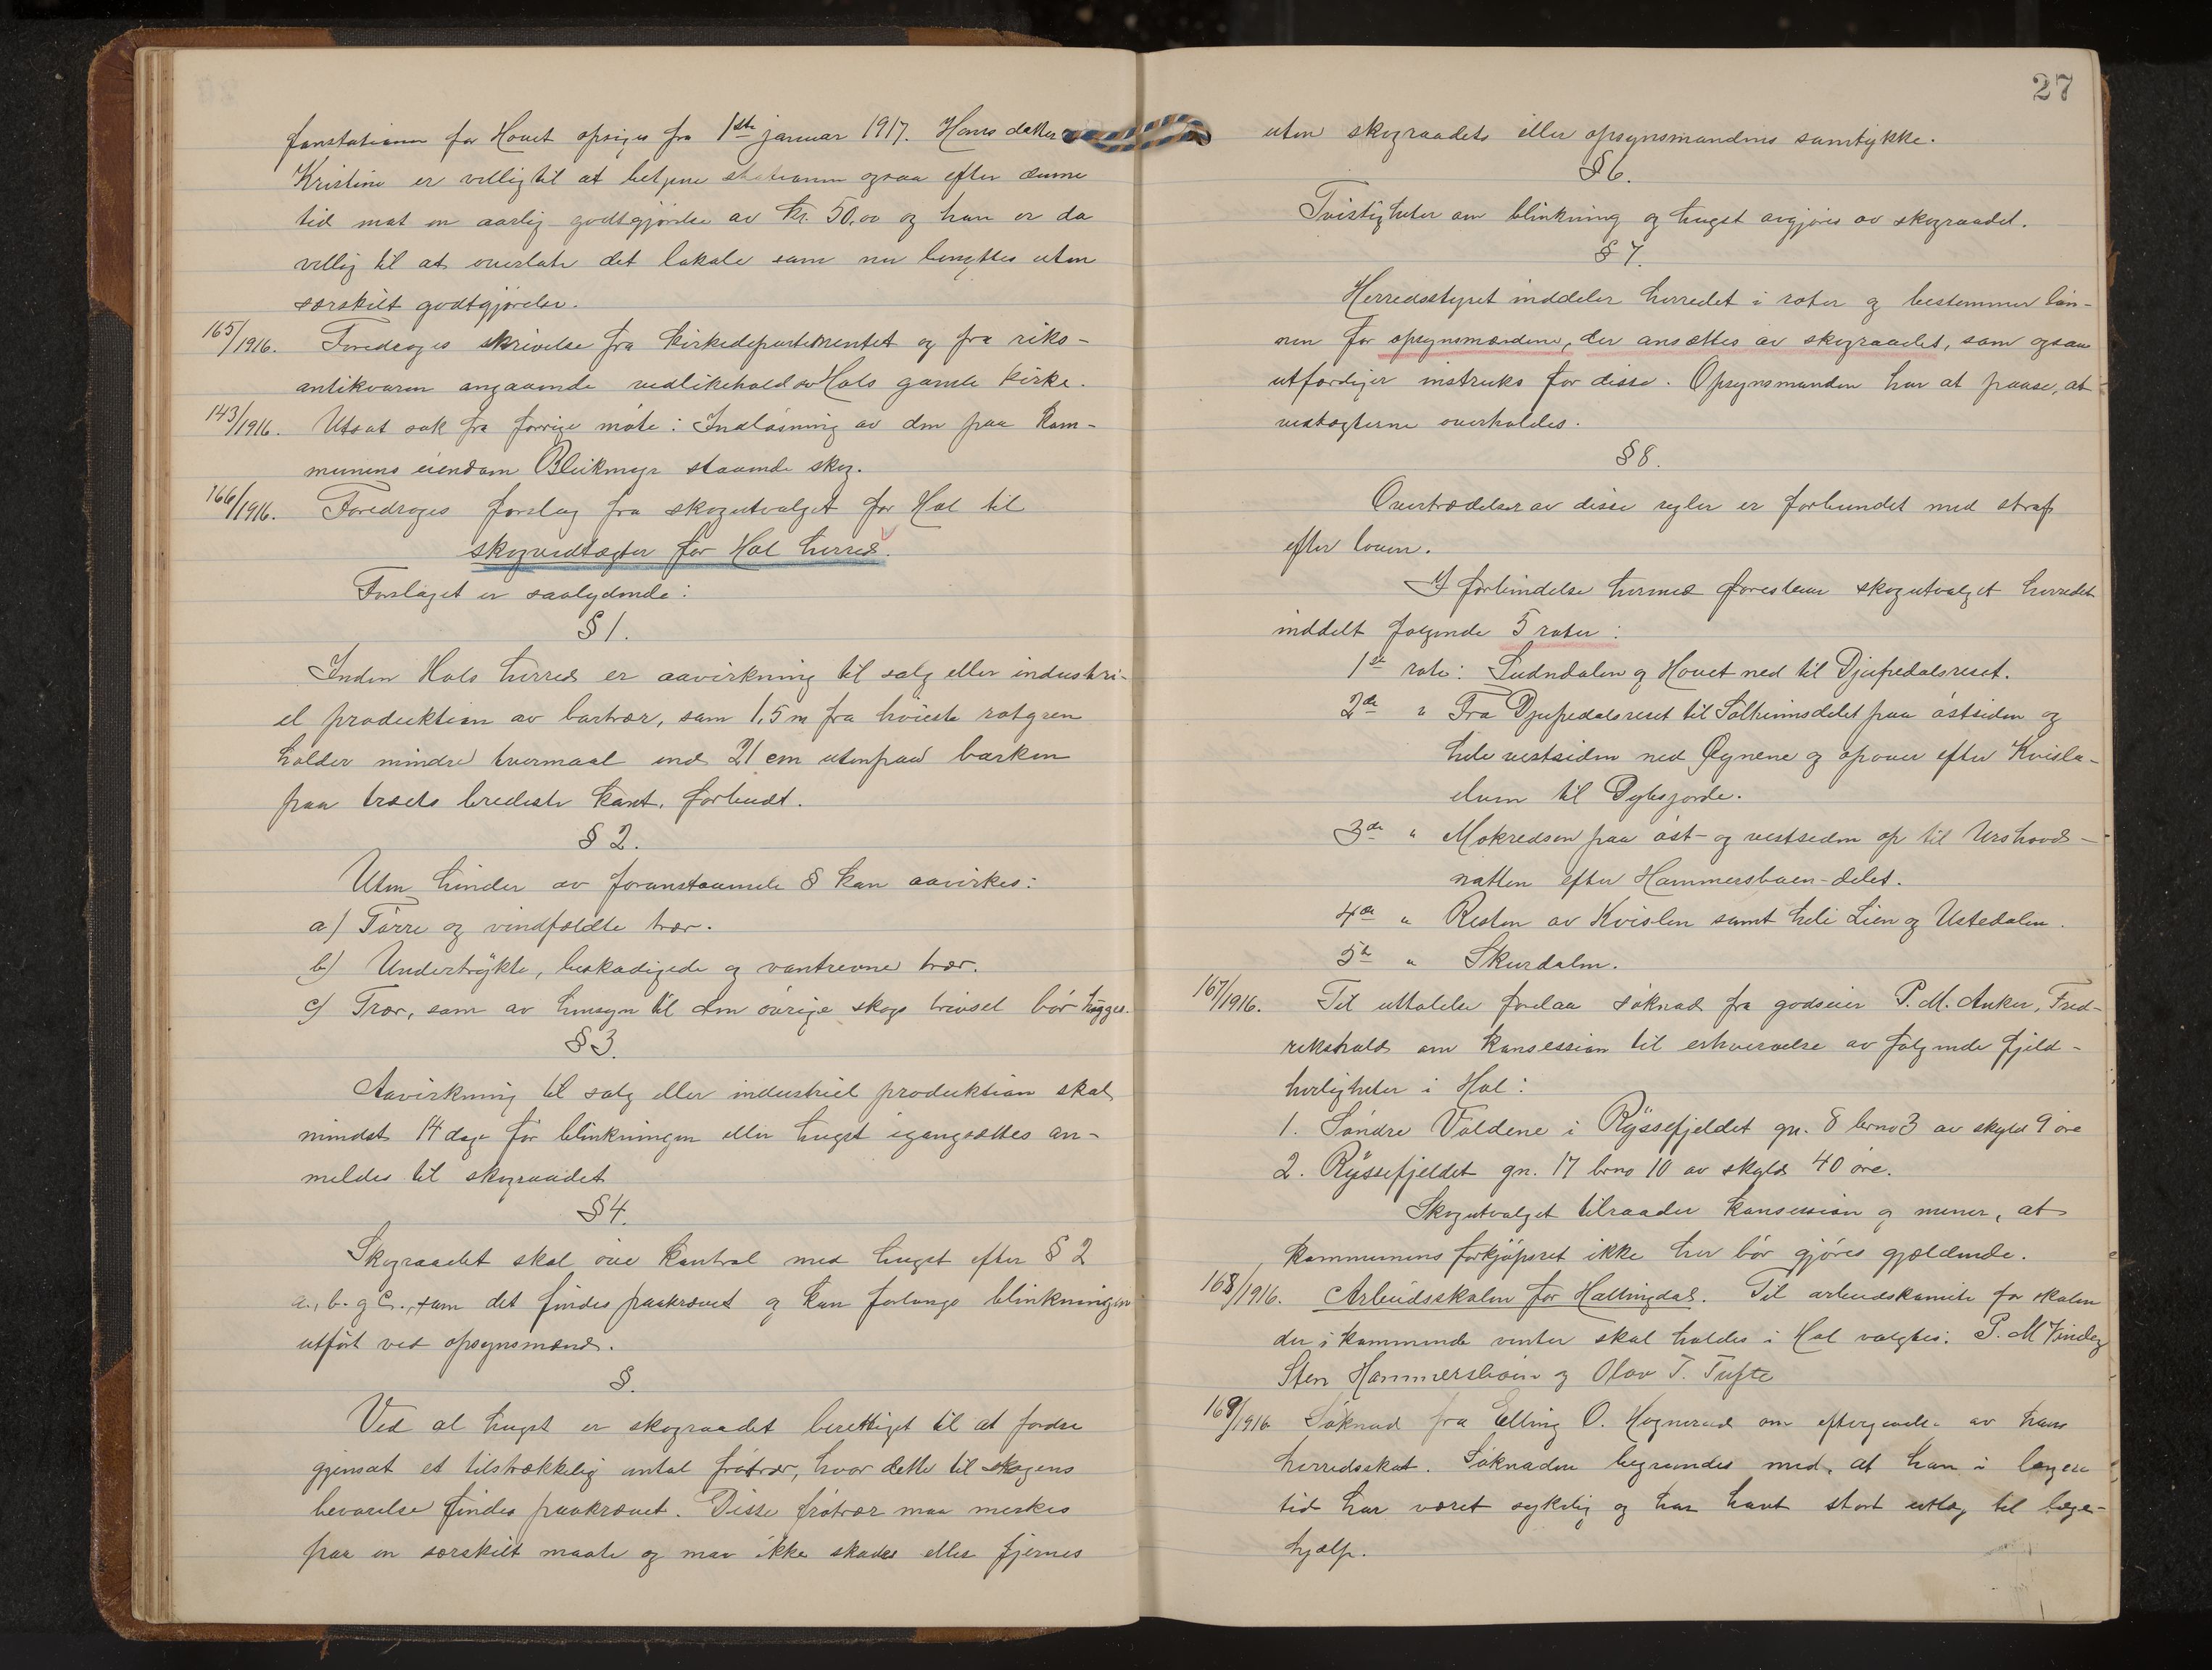 fonstationen for Hovet opsiges fra 1ste januar 1917. Hans datter
Kristine er villig til at betjene stationen ogsaa efter denne
tid mot en aarlig godtgjørelse av kr. 50,00 og han er da
villig til at overlate det lokale som nu benyttes uten
særskilt godtgjørelse.
165/1916. Foredroges skrivelse fra kirkedepartementet og fra riks-
antikvaren angaaende vedlikehold av Hols gamle kirke.
143/1916. Utsat sak fra forrige møte: Indløsning av den paa kom-
munens eiendom Bleikmyr staaende skog.
166/1916. Foredroges forslag fra skogutvalget for Hol til
skogvedtægter for Hol herred.
Forslaget er saalydende:
§ 1.
Inden Hols herred er aavirkning til salg eller industri-
el produktion av bartrær, som 1,5 m fra høieste rotgren
holder mindre tvermaal end 21 cm utenpaa barken
paa træets bredeste kant, forbudt.
§ 2.
Uten hinder av foranstaaende § kan aavirkes:
a) Tørre og vindfældte trær.
b) Undertrykte, beskadigede og vantrevne trær.
c) Trær, som av hensyn til den øvrige skogs trivsel bør hugges.
§ 3.
Aavirkning til salg eller industriel produktion skal
mindst 14 dage før blinkningen eller hugst igangsættes an-
meldes til skograadet
§ 4.
Skograadet skal øve kontrol med hugst efter § 2
a., b. og c., som det findes paakrævet og kan forlange blinkningen
utført ved opsynsmand.
§.
Ved al hugst er skograadet berettiget til at fordre
gjensat et tilstrækkelig antal frøtrær, hvor dette til skogens
bevarelse findes paakrævet. Disse frøtrær maa merkes
paa en særskilt maate og maa ikke skades eller fjernes
27
uten skograadets eller opsynsmandens samtykke.
§ 6.
Tvistigheter om blinkning og hugst avgjøres av skograadet.
§ 7.
Herredsstyret inddeler herredet i roter og bestemmer løn-
nen for opsynsmændene, der ansættes av skograadet, som ogsaa
utfærdiger instruks for disse. Opsynsmanden har at paase, at
vedtægterne overholdes.
§ 8.
Overtrædelser av disse regler er forbundet med straf
efter loven.
I forbindelse hermed foreslaar skogutvalget herredet
inddelt følgende 5 roter:
1ste rote: Sudndalen og Hovet ned til Djupedalsreset.
2den " Fra Djupedalsreset til Solheimsdelet paa østsiden og
hele vestsiden ned Øynene og opover efter Kvisla-
elven til Dybsjorde.
3die " Mokredsen paa øst- og vestsiden op til Urshovd-
natten efter Hammersbøen-delet.
4de " Resten av Kvislen samt hele Lien og Ustedalen.
5te " Skurdalen.
167/1916. Til uttalelse forelaa søknad fra godseier P. M. Anker, Fred-
rikshald om konsession til erhvervelse av følgende fjeld-
herligheter i Hol:
1. Søndre Vøldene i Ryssefjeldet gn. 8 brno 3 av skyld 9 øre
2. Ryssefjeldet gn. 17 brno 10 av skyld 40 øre.
Skogutvalget tilraader konsession og mener, at
kommunens forkjøpsret ikke her bør gjøres gjældende.
168/1916. Arbeidsskolen for Hallingdal. Til arbeidskomite for skolen
der i kommende vinter skal holdes i Hol valgtes: P. M.
Sten Hammersbøen og Olav T. Tufte
169/1916 Søknad fra Elling O. Hognerud om eftergivelse av hans
herredsskat. Søknaden begrundes med, at han i længere
tid har været sykelig og har havt stort utlæg til læge-
hjælp.